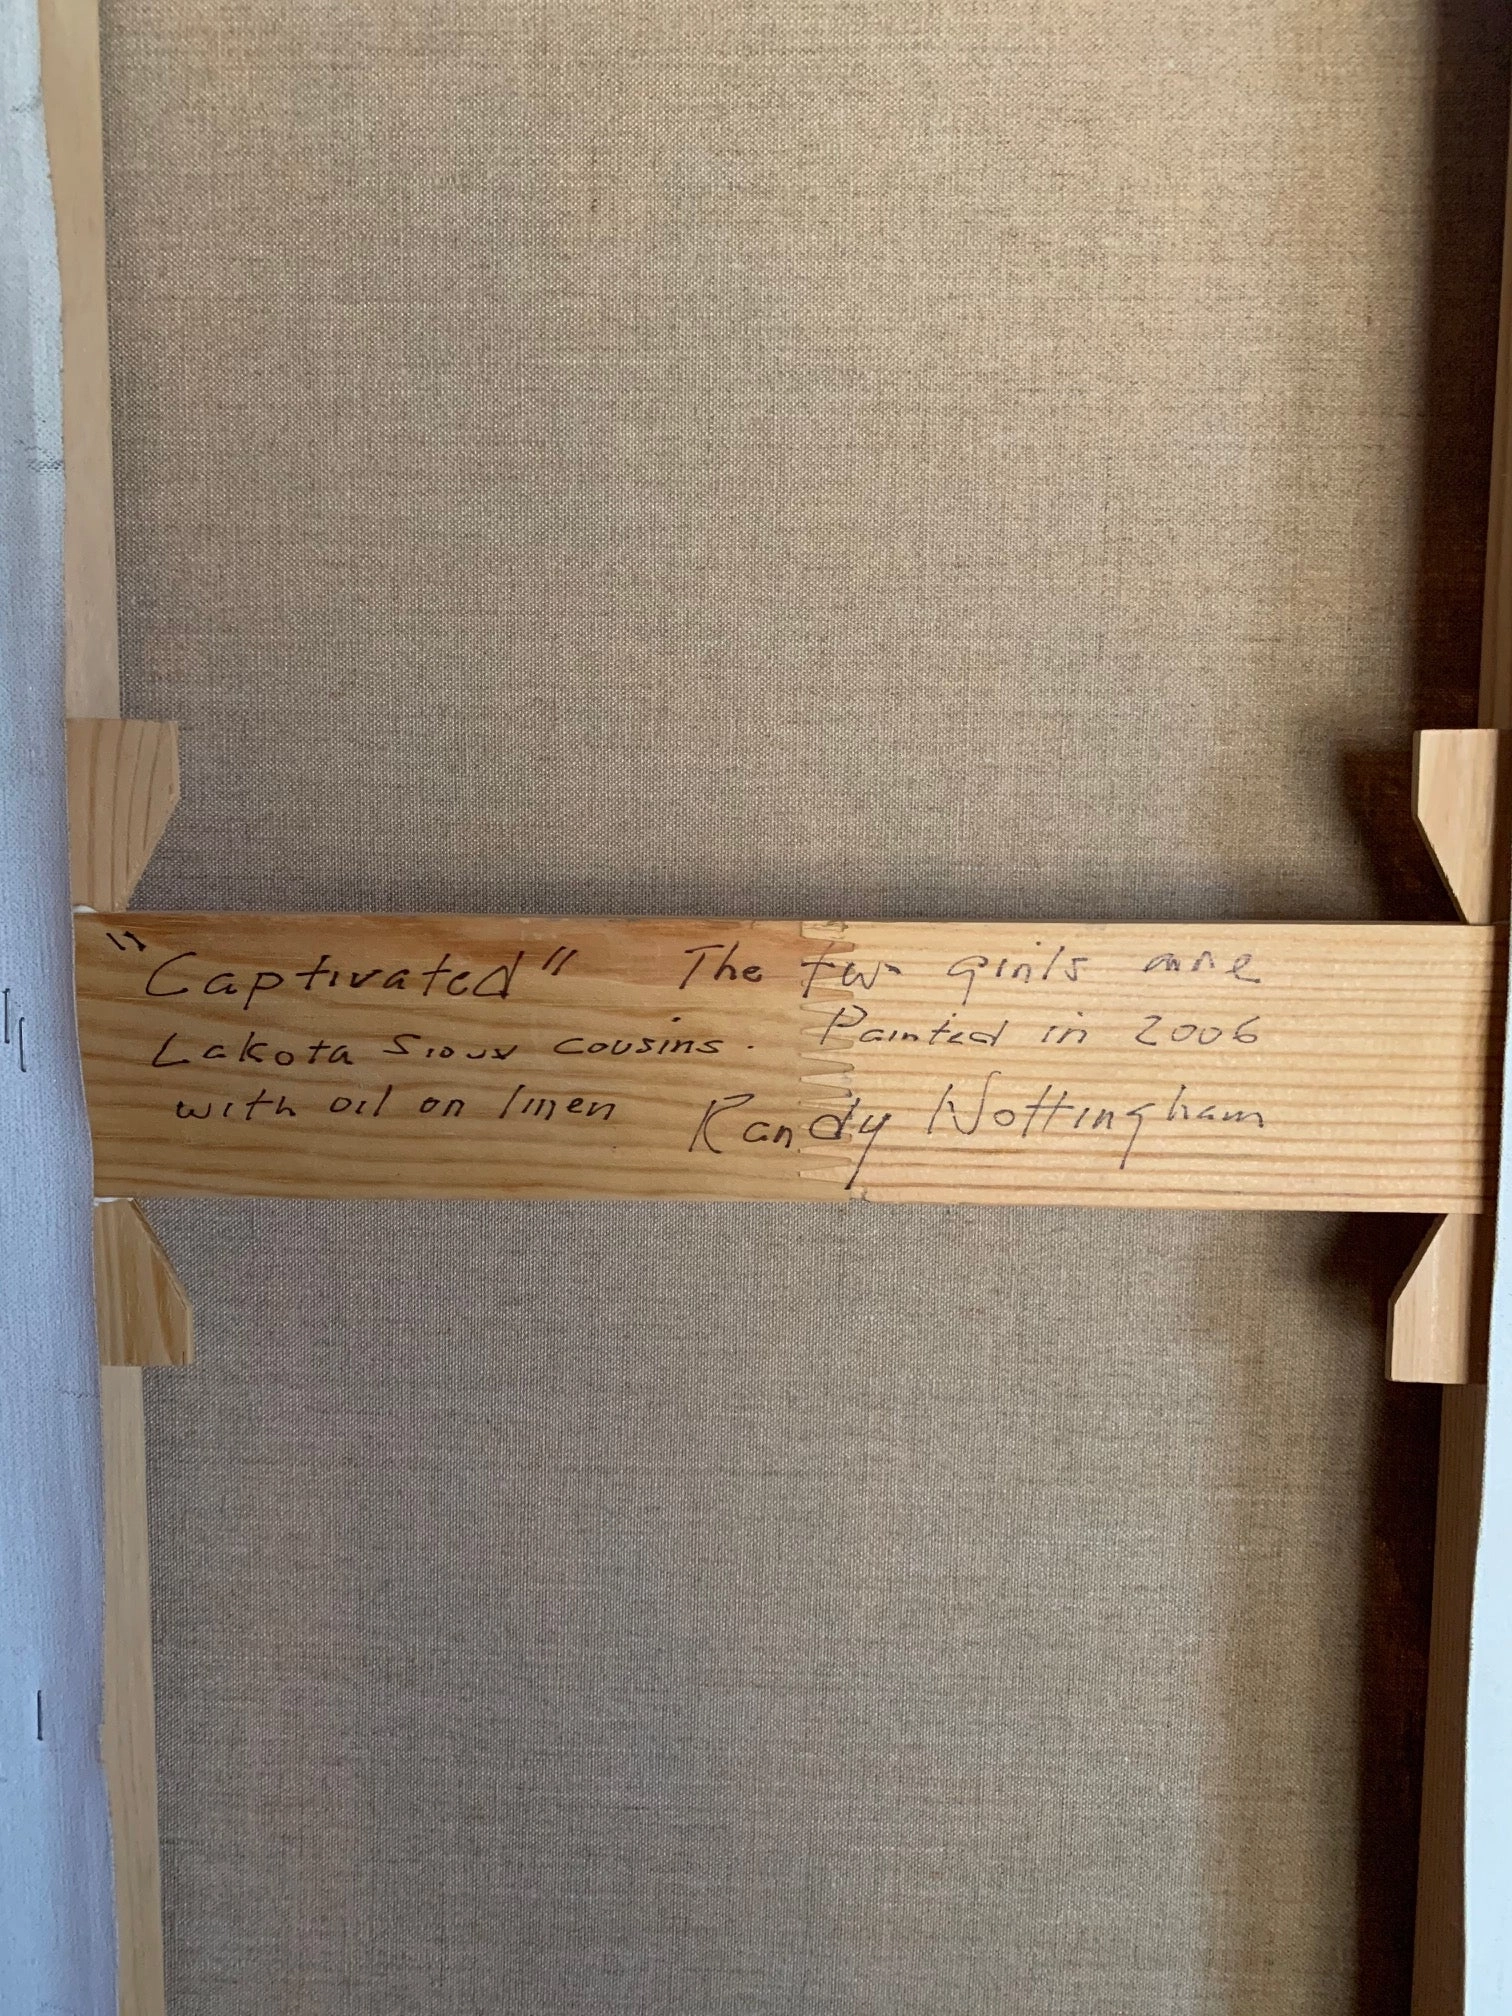 "Captivated" The two girls are
Lakota Sioux cousins. Painted in 2006
with oil on linen Randy Nottingham